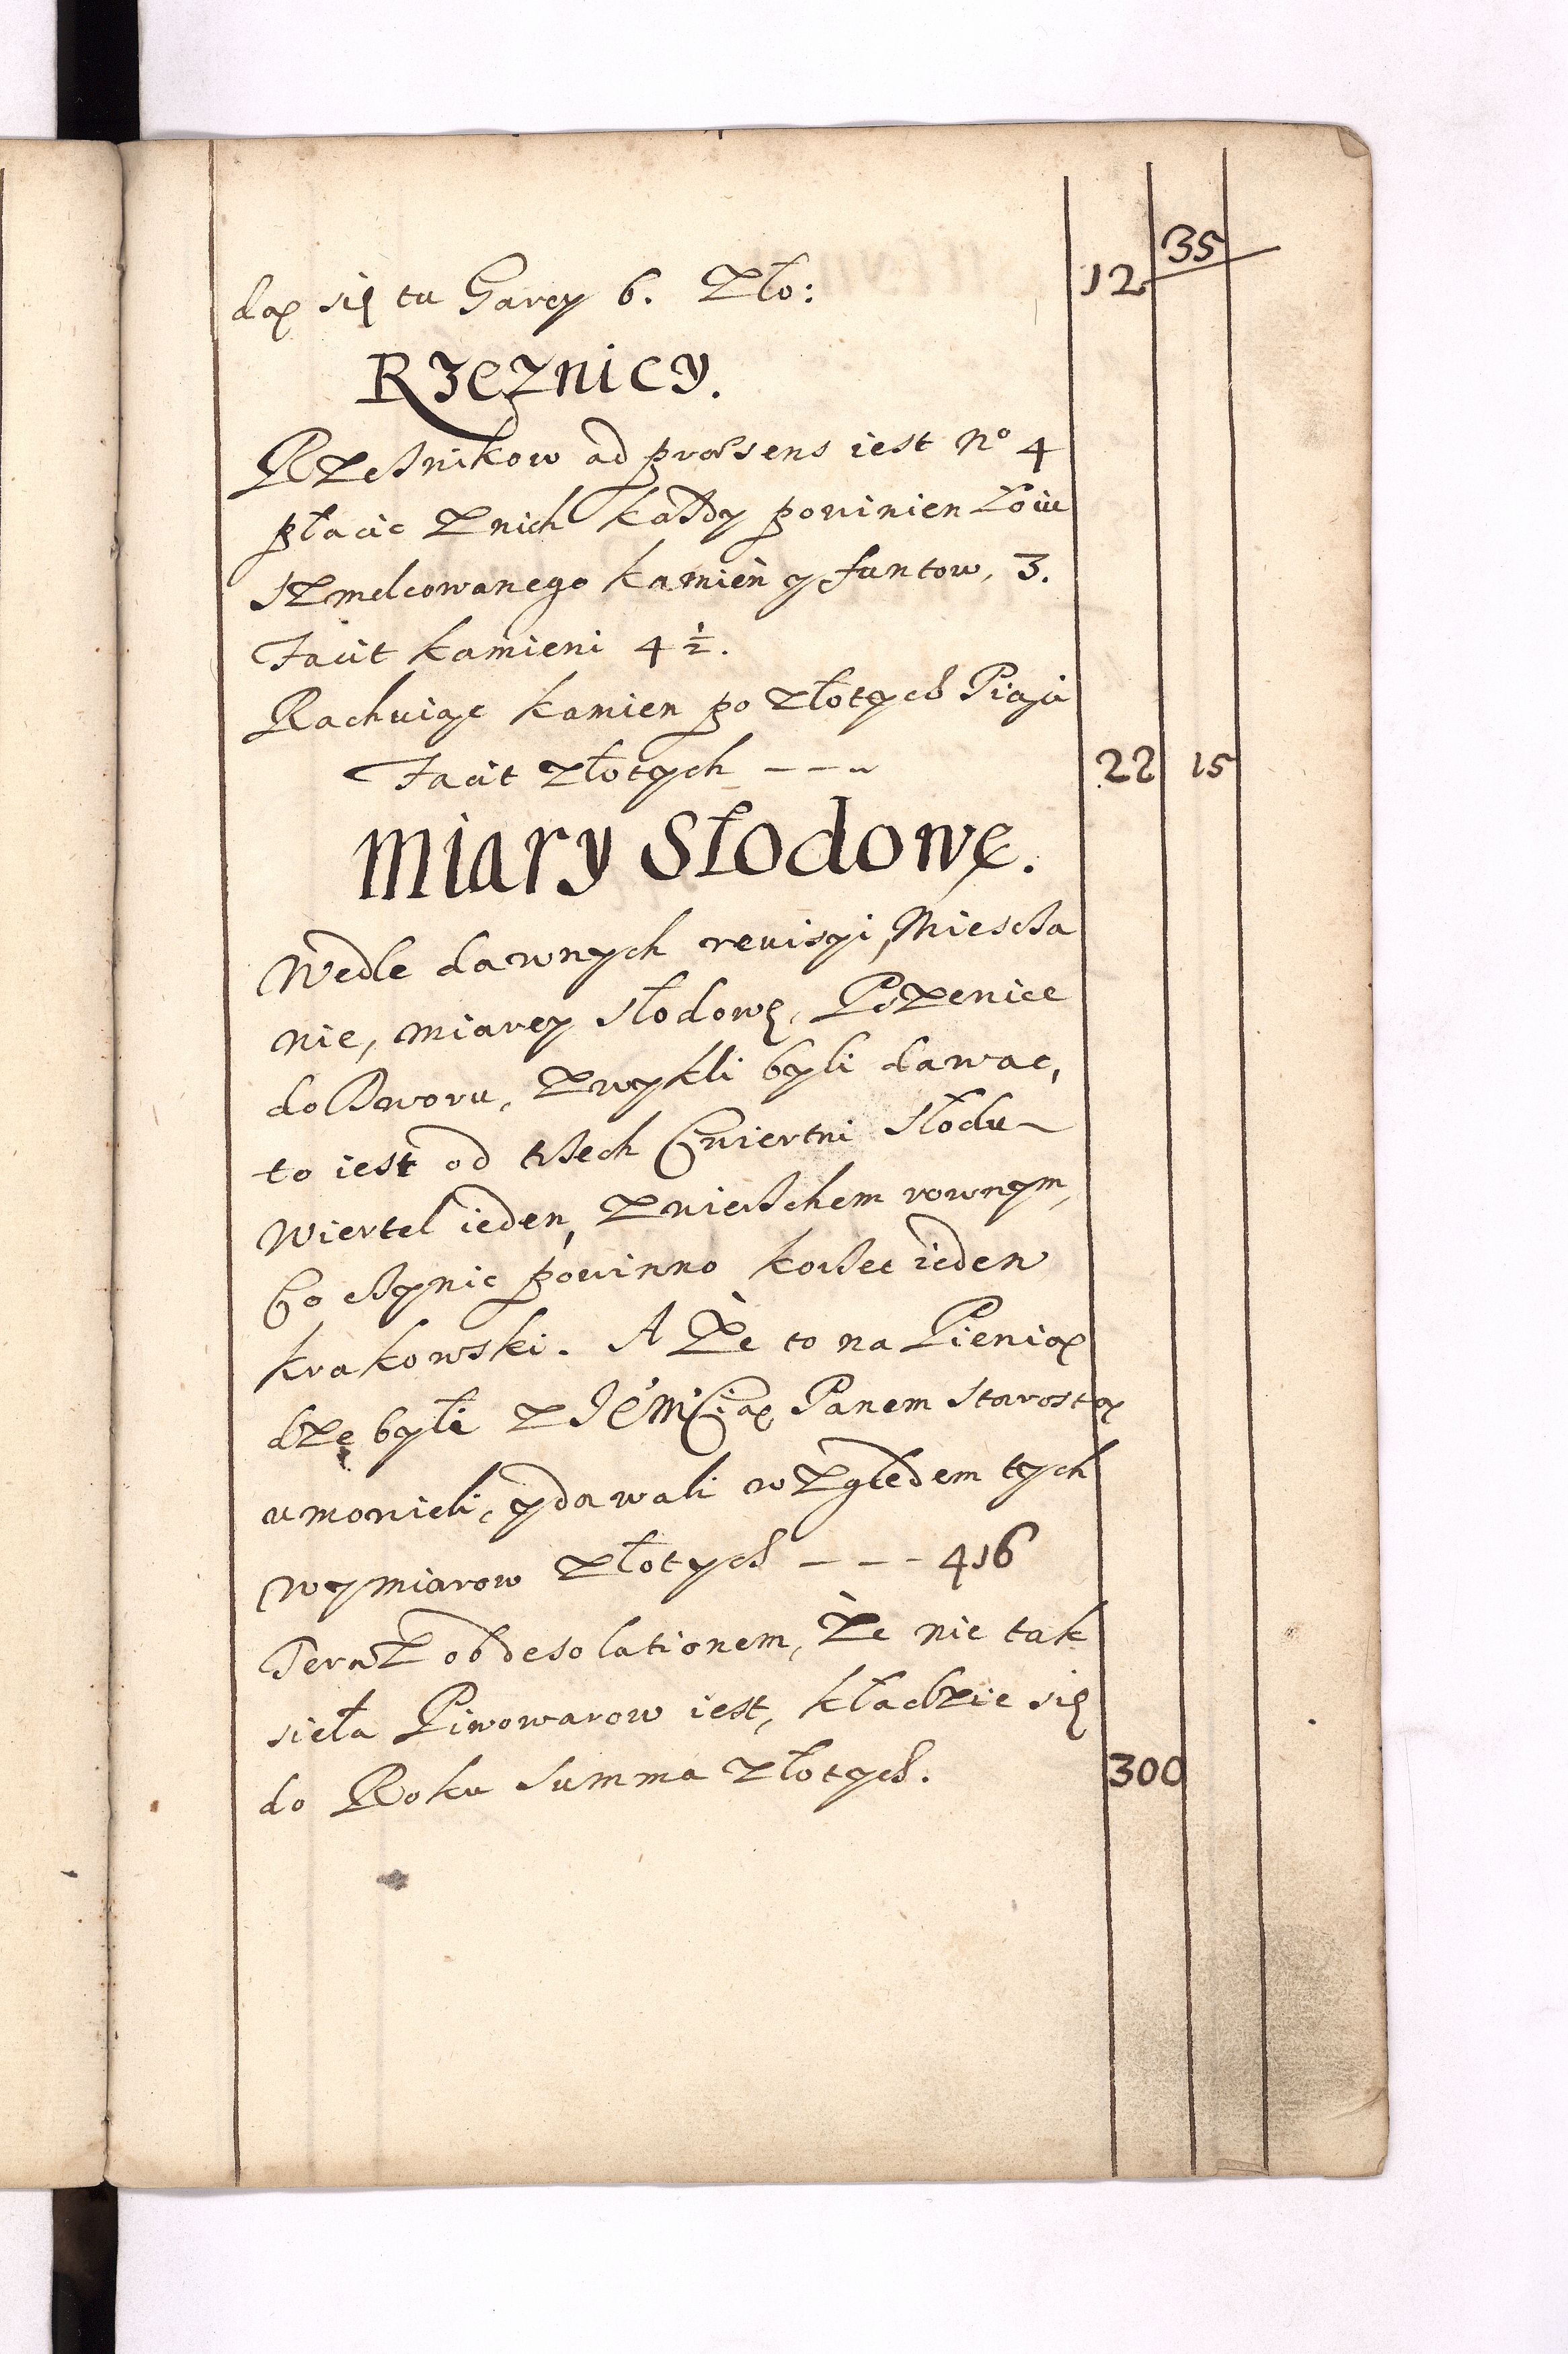 35
dą się tu Garcy 6. Zło: 12
Rzeznicy.
Rzeźnikow ad præsens iest No 4
płacic z nich każdy powinien Łoiu
szmelcowanego kamień y funtow. 3.
Facit kamieni 4 ½.
Rachuiąc kamien po złotych Piąci
Facit złotych --- 22 15
Miary Słodowe.
Wedle dawnych revisyi, Miescza
nie, miarey słodowę, Pszenice
do Dworu, zwykli byli dawac,
to iest od trzech Cwiertni słodu
Wiertel ieden, z wierzchem rownym,
Co czynic powinno korzec ieden
krakowski. A że to na Pienią
dze byli z JEMCią Panem Starostą
umowieli, y dawali względem tych
wymiarow złotych --- 416
Teraz ob desolationem, że nie tak
sieła Piwowarow iest, kładzie się
do Roku summa złotych. 300